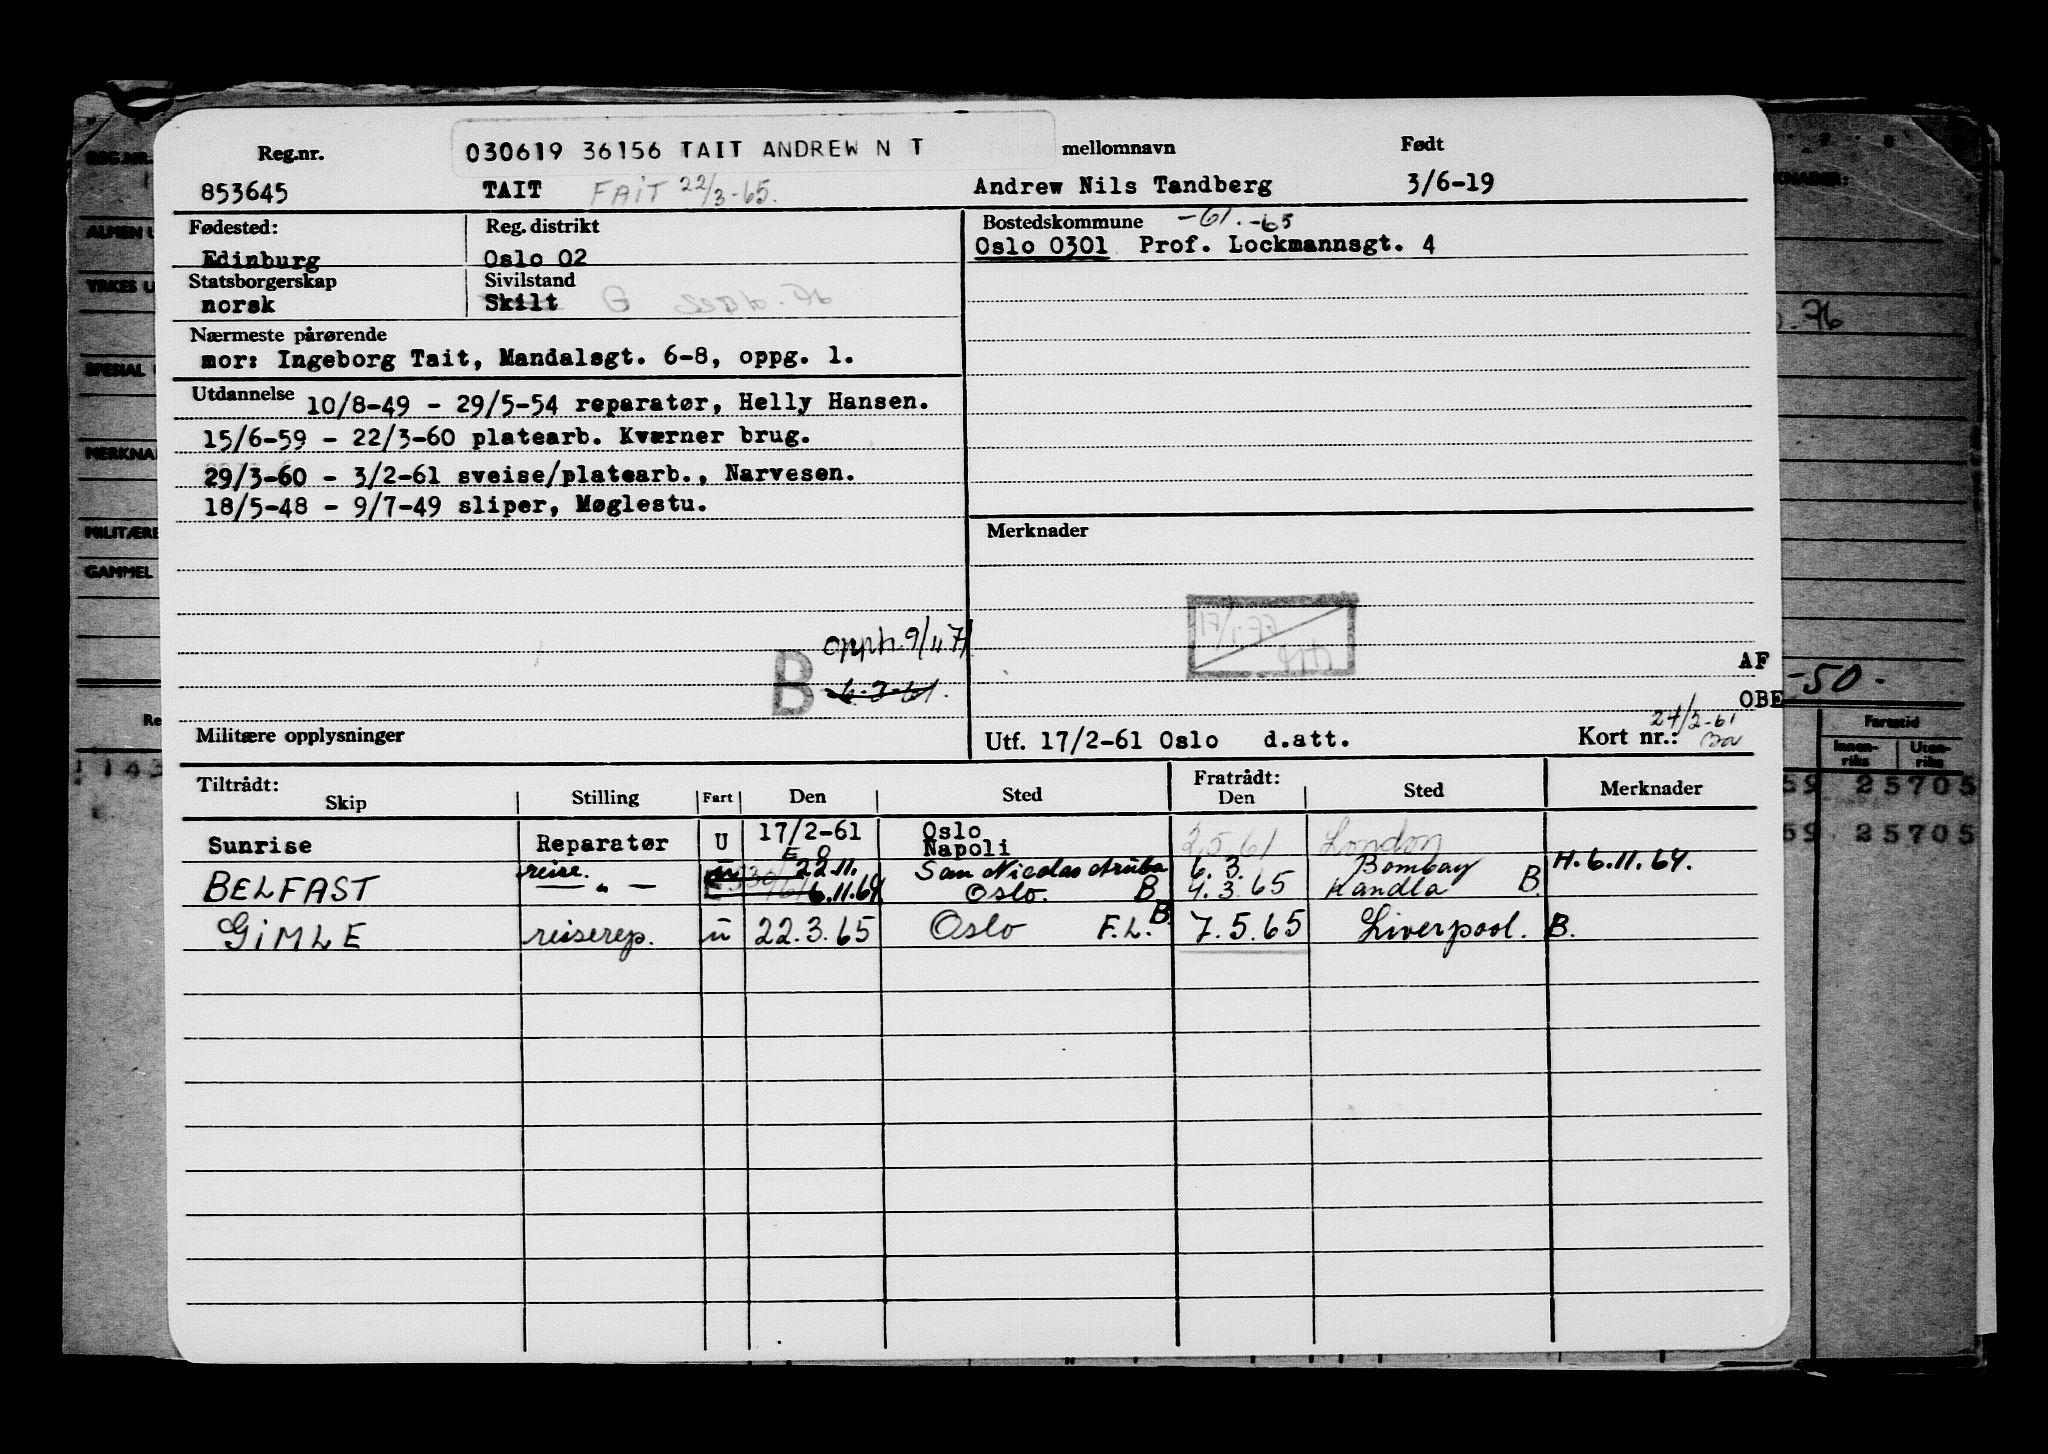 Reg.nr. 030619 36156 TAIT ANDREW N T mellomnavn Født
853645 TAIT FAIT 22/3-65. Andrew Nils Tandberg 3/6-19
Fødested: Reg. distrikt Bostedskommune -61. -65
Edinburg Oslo 02 Oslo 0301 Prof. Lockmannsgt. 4
Statsborgerskap Sivilstand
norsk Skilt G
Nærmeste pårørende
mor: Ingeborg Tait, Mandalsgt. 6-8, oppg. 1.
Utdannelse 10/8-49 - 29/5-54 reparatør, Helly Hansen.
15/6-59 - 22/3-60 platearb. Kværner brug.
29/3-60 - 3/2-61 sveise/platearb., Narvesen.
18/5-48 - 9/7-49 sliper, Møglestu.
Merknader
opph. 9/11 71
B 6-3-61.
AF
OBE -50.
Militære opplysninger Utf. 17/2-61 Oslo d.att. Kort nr.: 24/2-61
Tiltrådt: Fratrådt:
Skip Stilling Fart Den Sted Den Sted Merknader
Sunrise Reparatør U 17/2-61 Oslo 2.5.61 London
E O Napoli
reise. 22.11. San Nicolas Aruba 6.3. Bombay H. 6.11.64.
BELFAST — " — 6.11.64 Oslo. B 4.3.65 Kandla B.
GIMLE reiserep. u 22.3.65 Oslo F.L. B. 7.5.65 Liverpool. B.
REG.NR.
ALMEN U
YRKES U
SPESIAL
MERKNA
MILITÆRE
GAMMEL
KNADER:
. 76
Re
Fartstid
Innen-riks Uten-riks
1143
59 25705
59 25705